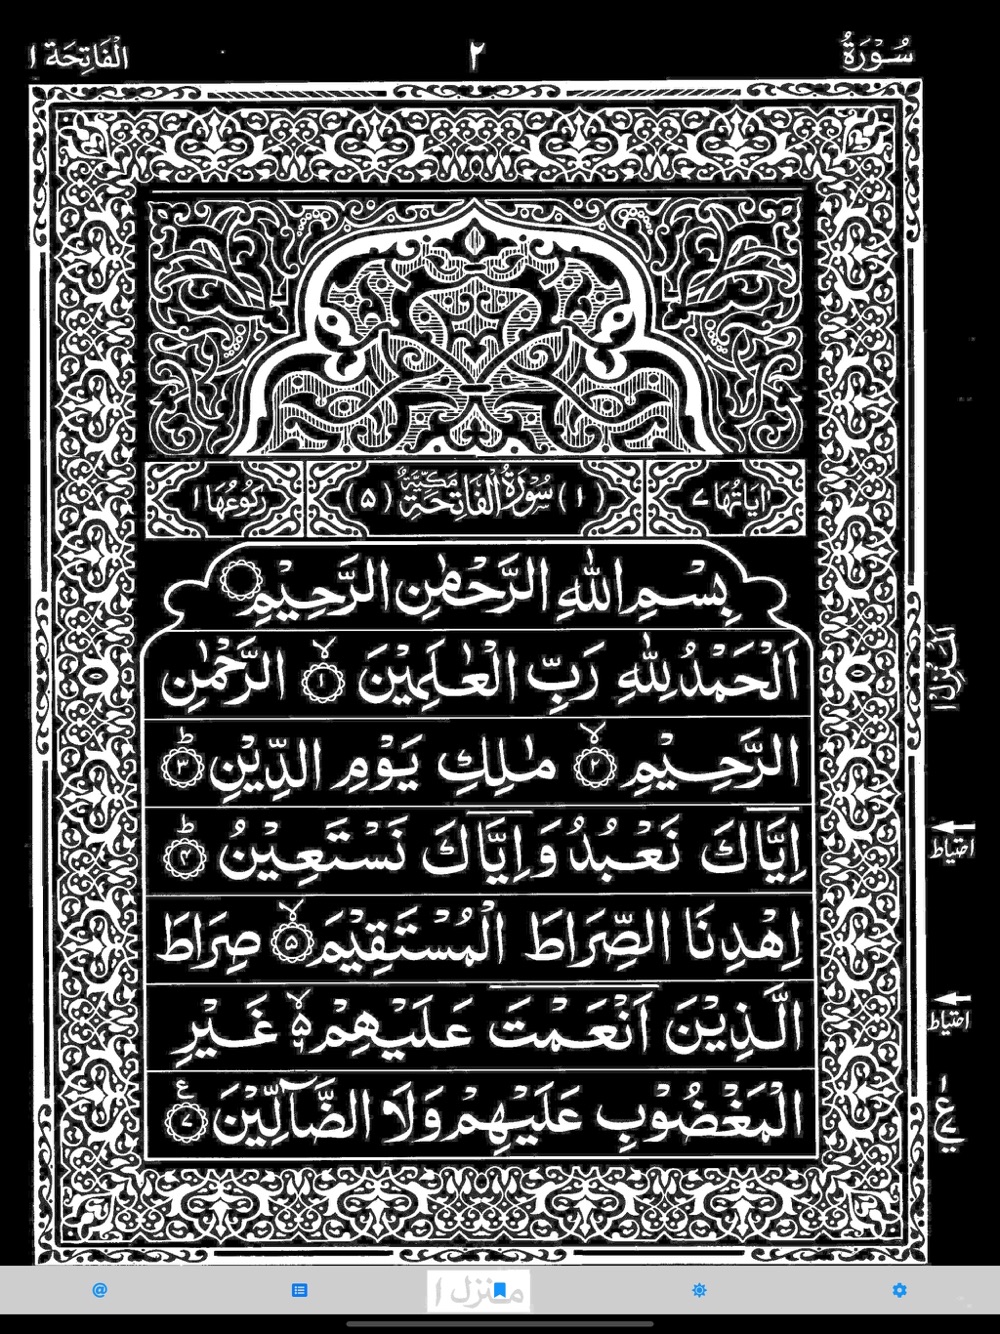 سُوْرَةُ ٢ الْفَاتِحَة ١
اٰيَاتُهَا ٧ (١) سُوْرَةُ الْفَاتِحَةِ مَكِّيَّةٌ (۵) رُكُوْعُهَا ١
بِسْمِ اللّٰهِ الرَّحْمٰنِ الرَّحِيْمِ
اَلْحَمْدُ لِلّٰهِ رَبِّ الْعٰلَمِيْنَ ۙ﴿١﴾ الرَّحْمٰنِ
الرَّحِيْمِ ۙ﴿٢﴾ مٰلِكِ يَوْمِ الدِّيْنِ ؕ﴿٣﴾
اِيَّاكَ نَعْبُدُ وَ اِيَّاكَ نَسْتَعِيْنُ ؕ﴿۴﴾
اِهْدِنَا الصِّرَاطَ الْمُسْتَقِيْمَ ۙ﴿۵﴾ صِرَاطَ
الَّذِيْنَ اَنْعَمْتَ عَلَيْهِمْ ۙ۵ غَيْرِ
الْمَغْضُوْبِ عَلَيْهِمْ وَلَا الضَّآلِّيْنَ ﴿٧﴾ ع
اَلْمَنْزِل ١
احتیاط
احتیاط
١
ع
منزل ١